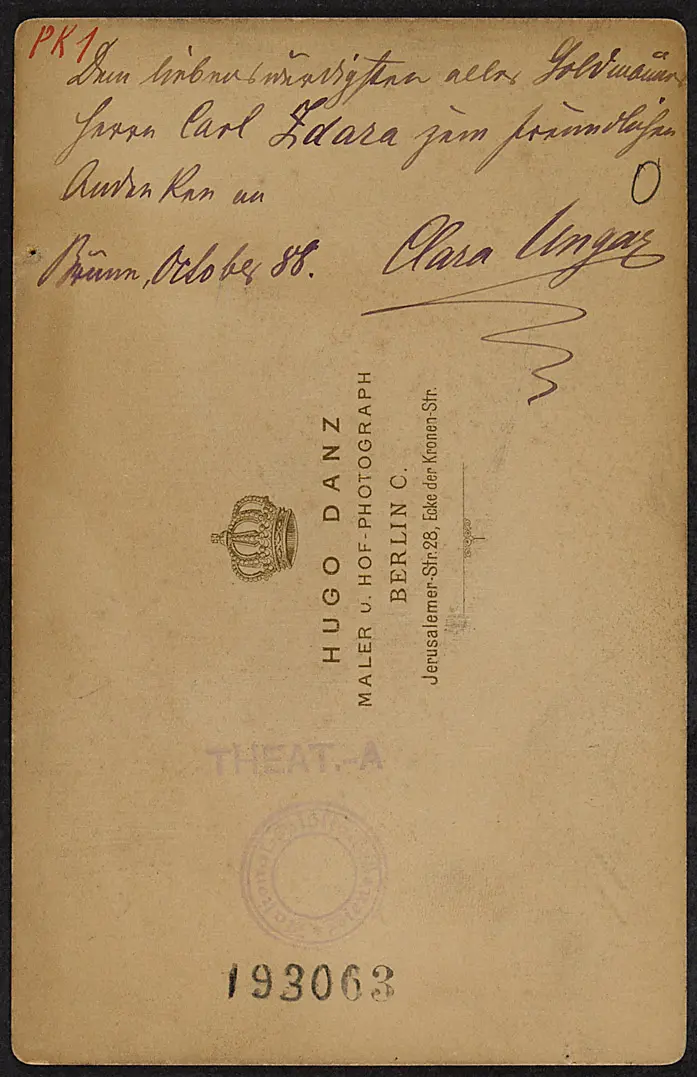 PK1
Dem liebenswürdigsten aller Goldmänner
Herrn Carl Zdara zum freundlichen
Andenken an
Brünn, October 88.
Clara Ungar
HUGO DANZ
MALER U. HOF-PHOTOGRAPH
BERLIN C.
Jerusalemer-Str. 28, Ecke der Kronen-Str.
THEAT.-A
193063